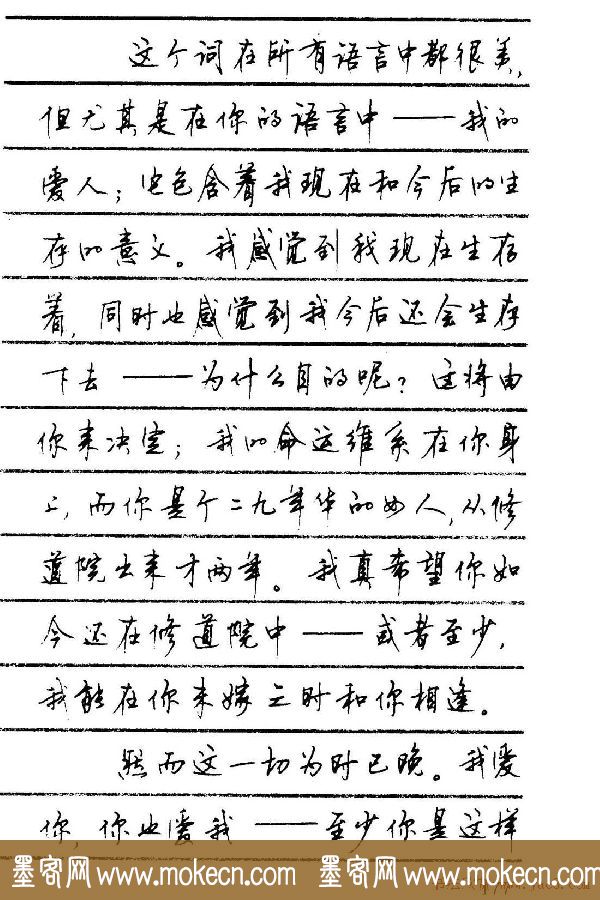 这个词在所有语言中都很美，
但尤其是在你的语言中——我的
爱人；它包含着我现在和今后的生
存的意义。我感觉到我现在生存
着，同时也感觉到我今后还会生存
下去——为什么目的呢？这将由
你来决定；我的命运维系在你身
上，而你是个二九年华的女人，从修
道院出来才两年。我真希望你如
今还在修道院中——或者至少，
我能在你未嫁之时和你相逢。
然而这一切为时已晚。我爱
你，你也爱我——至少你是这样
墨客网 www.mokecn.com 墨客网 www.mokecn.com